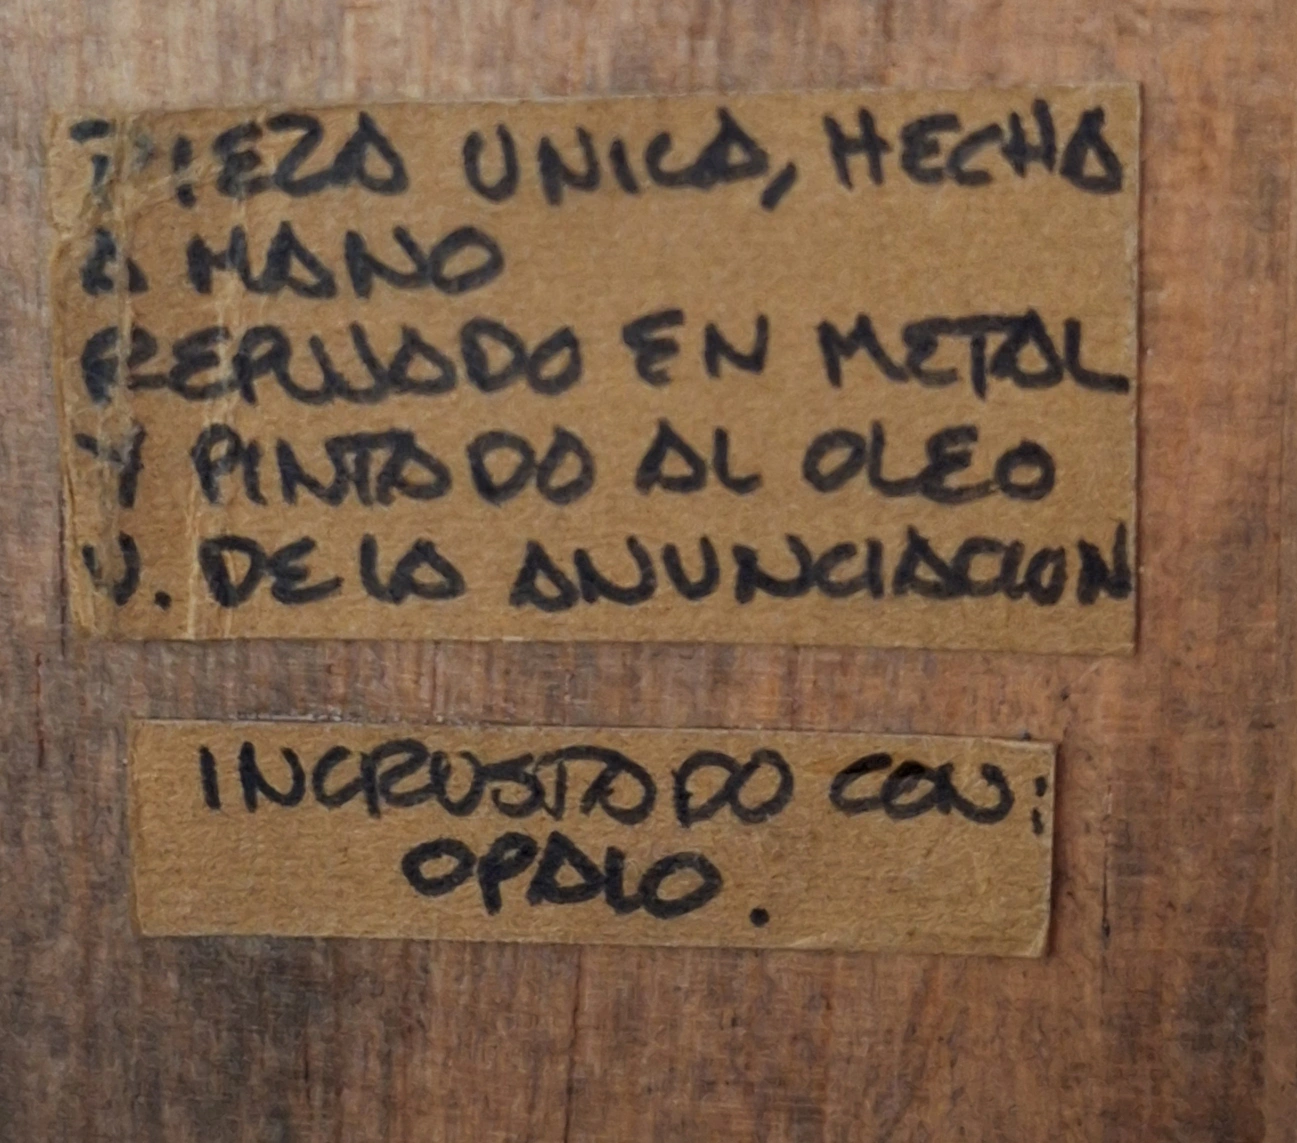 PIEZA UNICA, HECHA
A MANO
REPUJADO EN METAL
Y PINTADO AL OLEO
V. DE LA ANUNCIACION
INCRUSTADO CON:
OPALO.